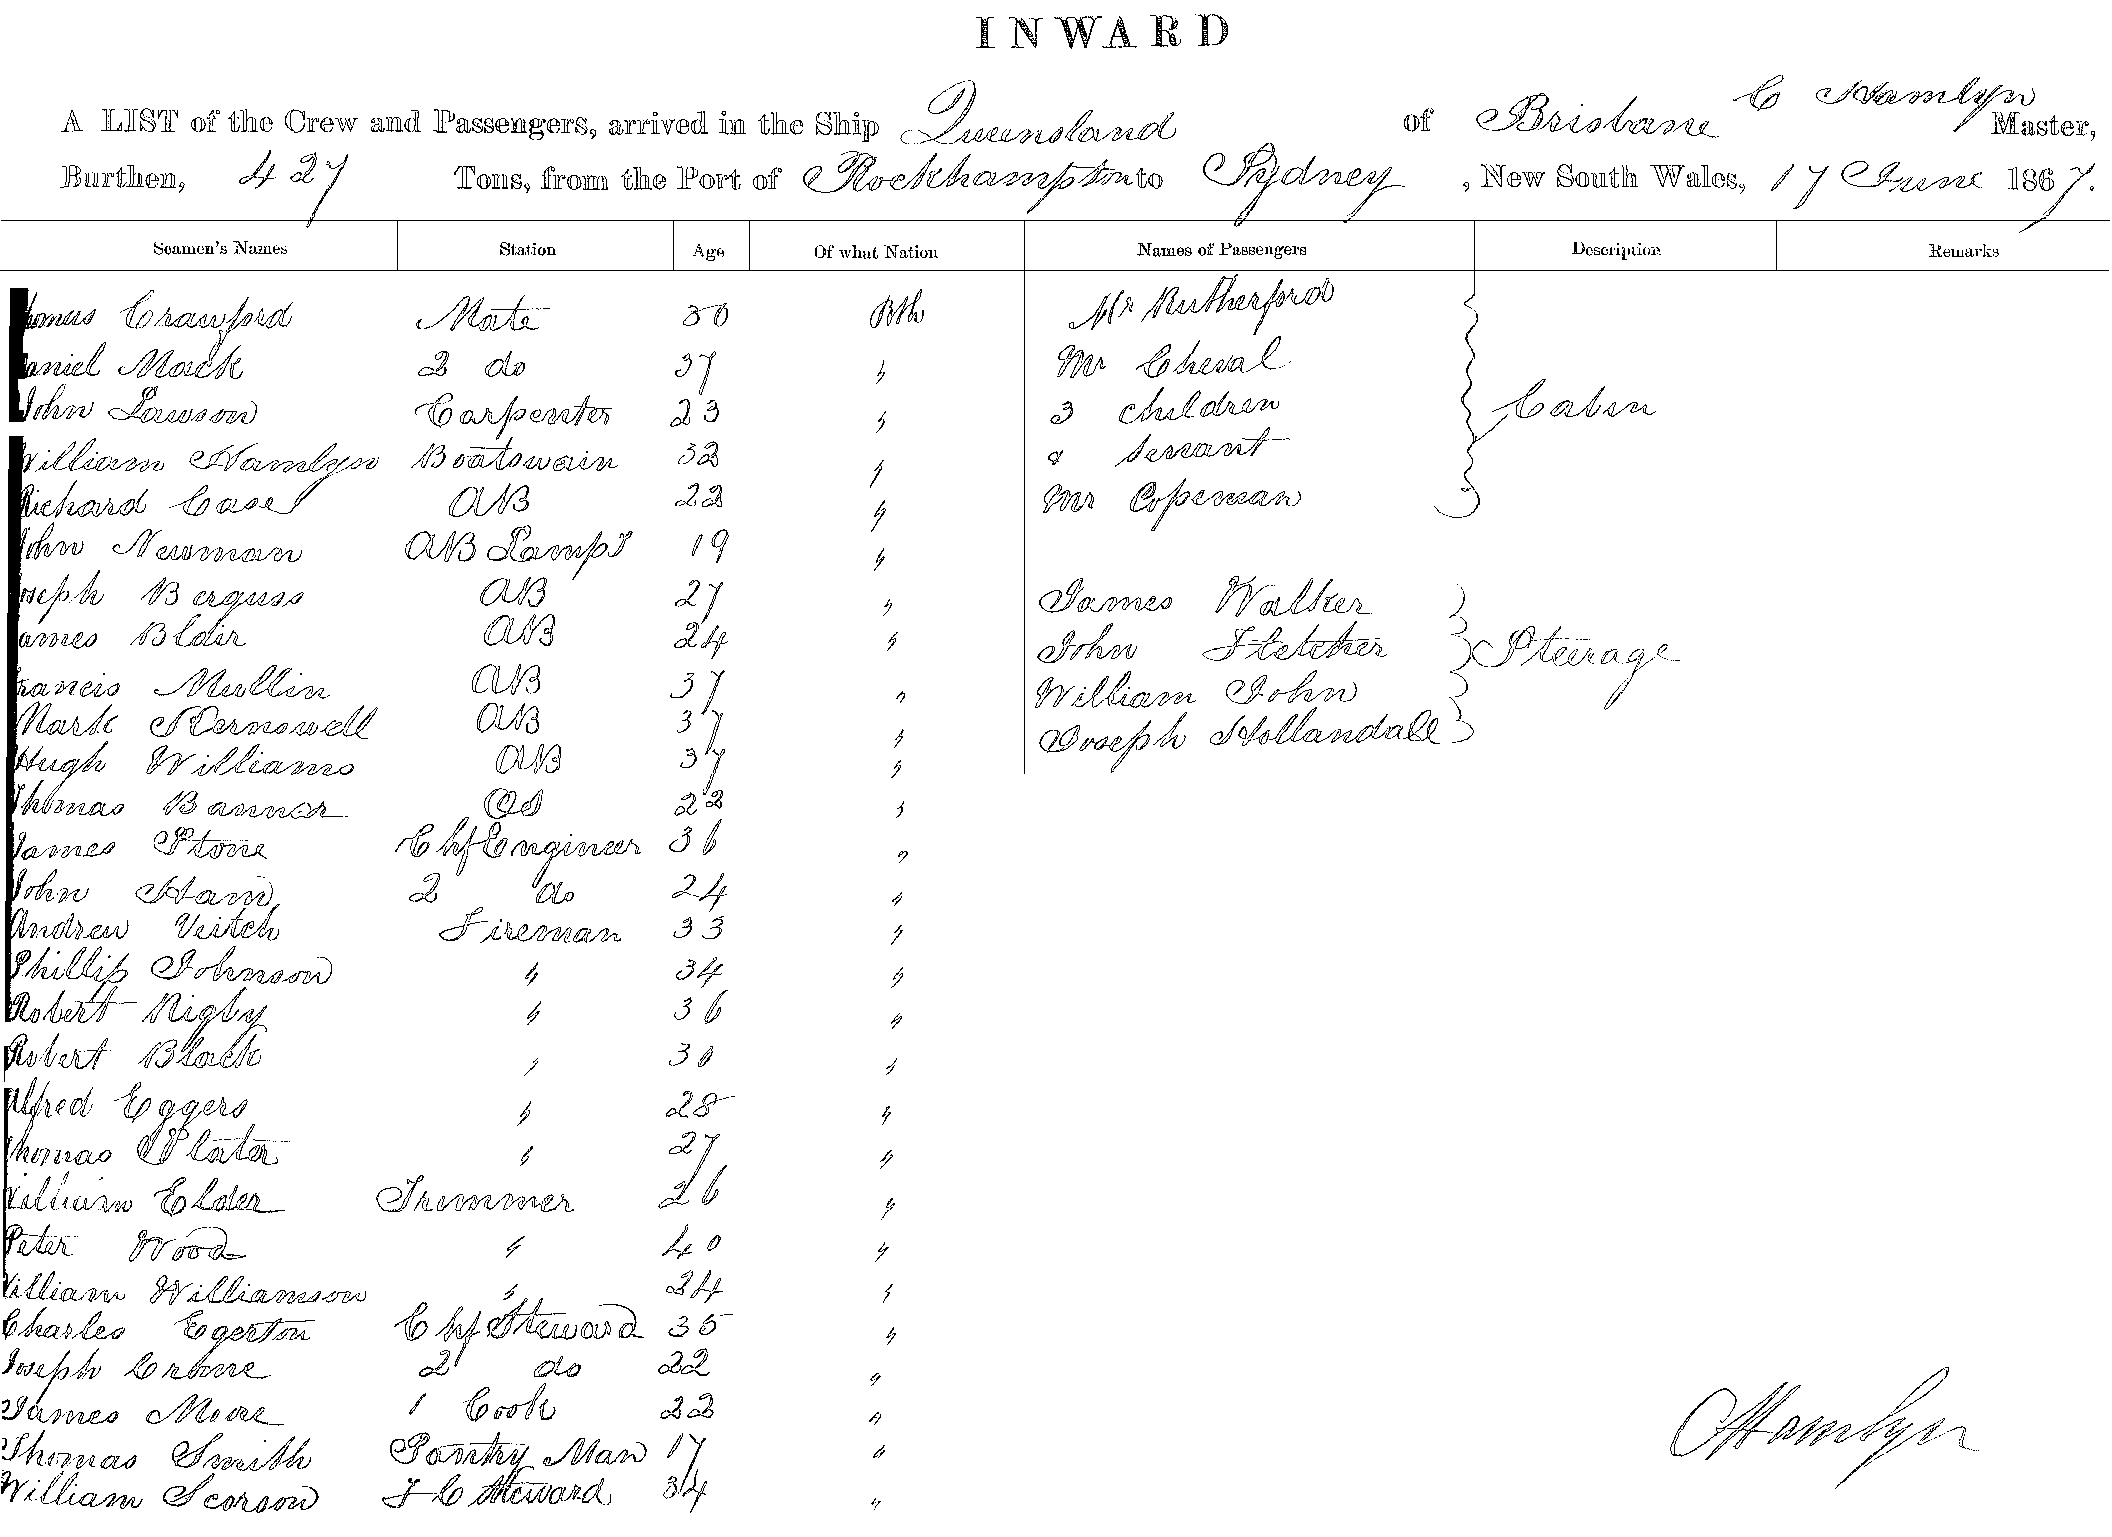 INWARD
A LIST of the Crew and Passengers, arrived in the Ship Queensland of Brisbane C Hamlyn Master,
Burthen, 427 Tons, from the Port of Rockhampton to Sydney, New South Wales, 17 June 1867.
Seamen's Names Station Age Of what Nation Names of Passengers Description Remarks
Thomas Crawford Mate 30 Bth Mr Rutherford
Daniel Mack 2 do 37 " Mr Cheval
John Lawson Carpenter 23 " 3 children Cabin
William Hamlyn Boatswain 32 " & servant
Richard Case AB 22 " Mr Copeman
John Newman AB Lamps 19 "
Joseph Berguss AB 27 " James Walker
James Blair AB 24 " John Fletcher Steerage
Francis Mullin AB 37 " William John
Mark AB 37 " Joseph Hollandall
Hugh Williams AB 37 "
Thomas Bannar OS 22 "
James Stone Chf Engineer 36 "
John Ham 2 do 24 "
Andrew Veitch Fireman 33 "
Phillip Johnson " 34 "
Robert Rigby " 36 "
Robert Black " 30 "
Alfred Eggers " 28 "
Thomas Slater " 27 "
William Elder Trimmer 26 "
Peter Wood " 40 "
William Williamson " 24 "
Charles Egerton Chf Steward 35 "
Joseph Crane 2 do 22 "
James Moore 1 Cook 22 "
Thomas Smith Pantry Man 17 "
William Scorson F C Steward 34 "
CHamlyn